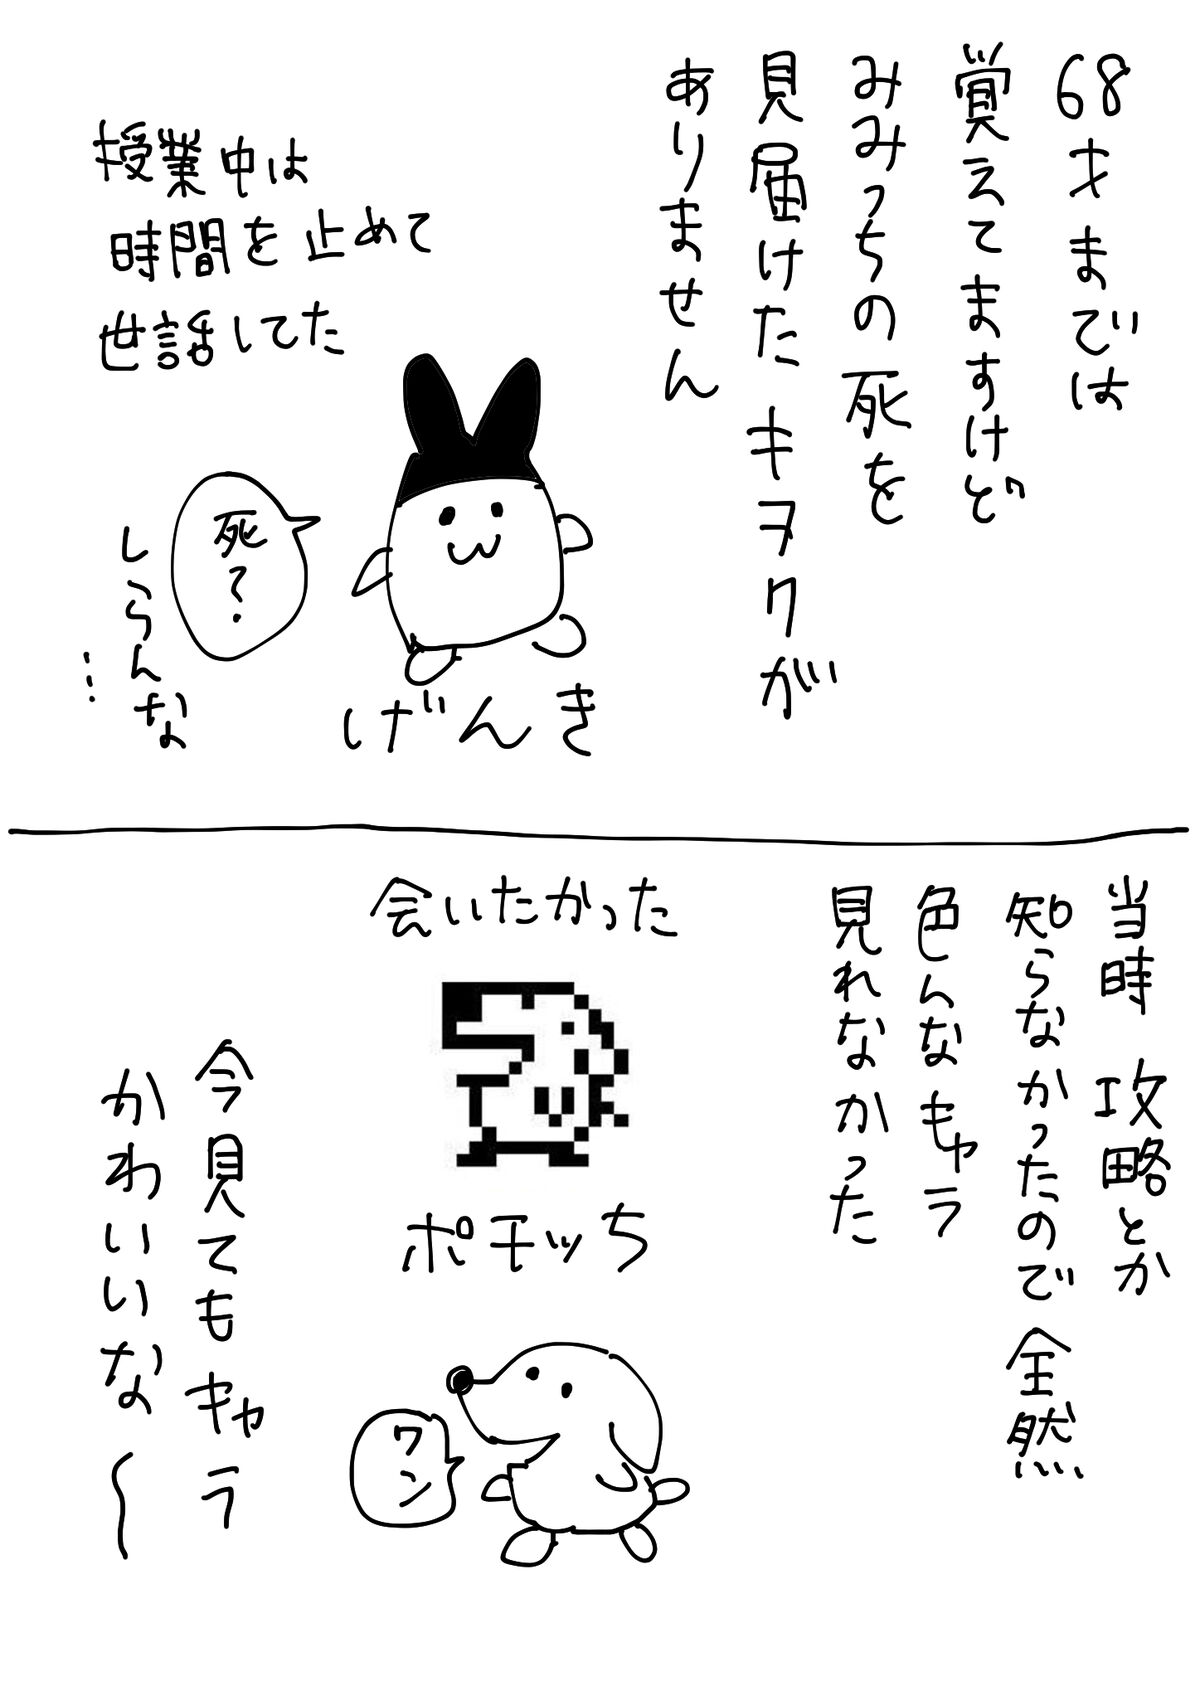 68才までは
覚えてますけど
みみっちの死を
見届けたキヲクが
ありません
授業中は
時間を止めて
世話してた
死?
しらんな…
げんき
当時 攻略とか
知らなかったので全然
色んなキャラ
見れなかった
会いたかった
ポチッち
ワン
今見てもキャラ
かわいいな〜